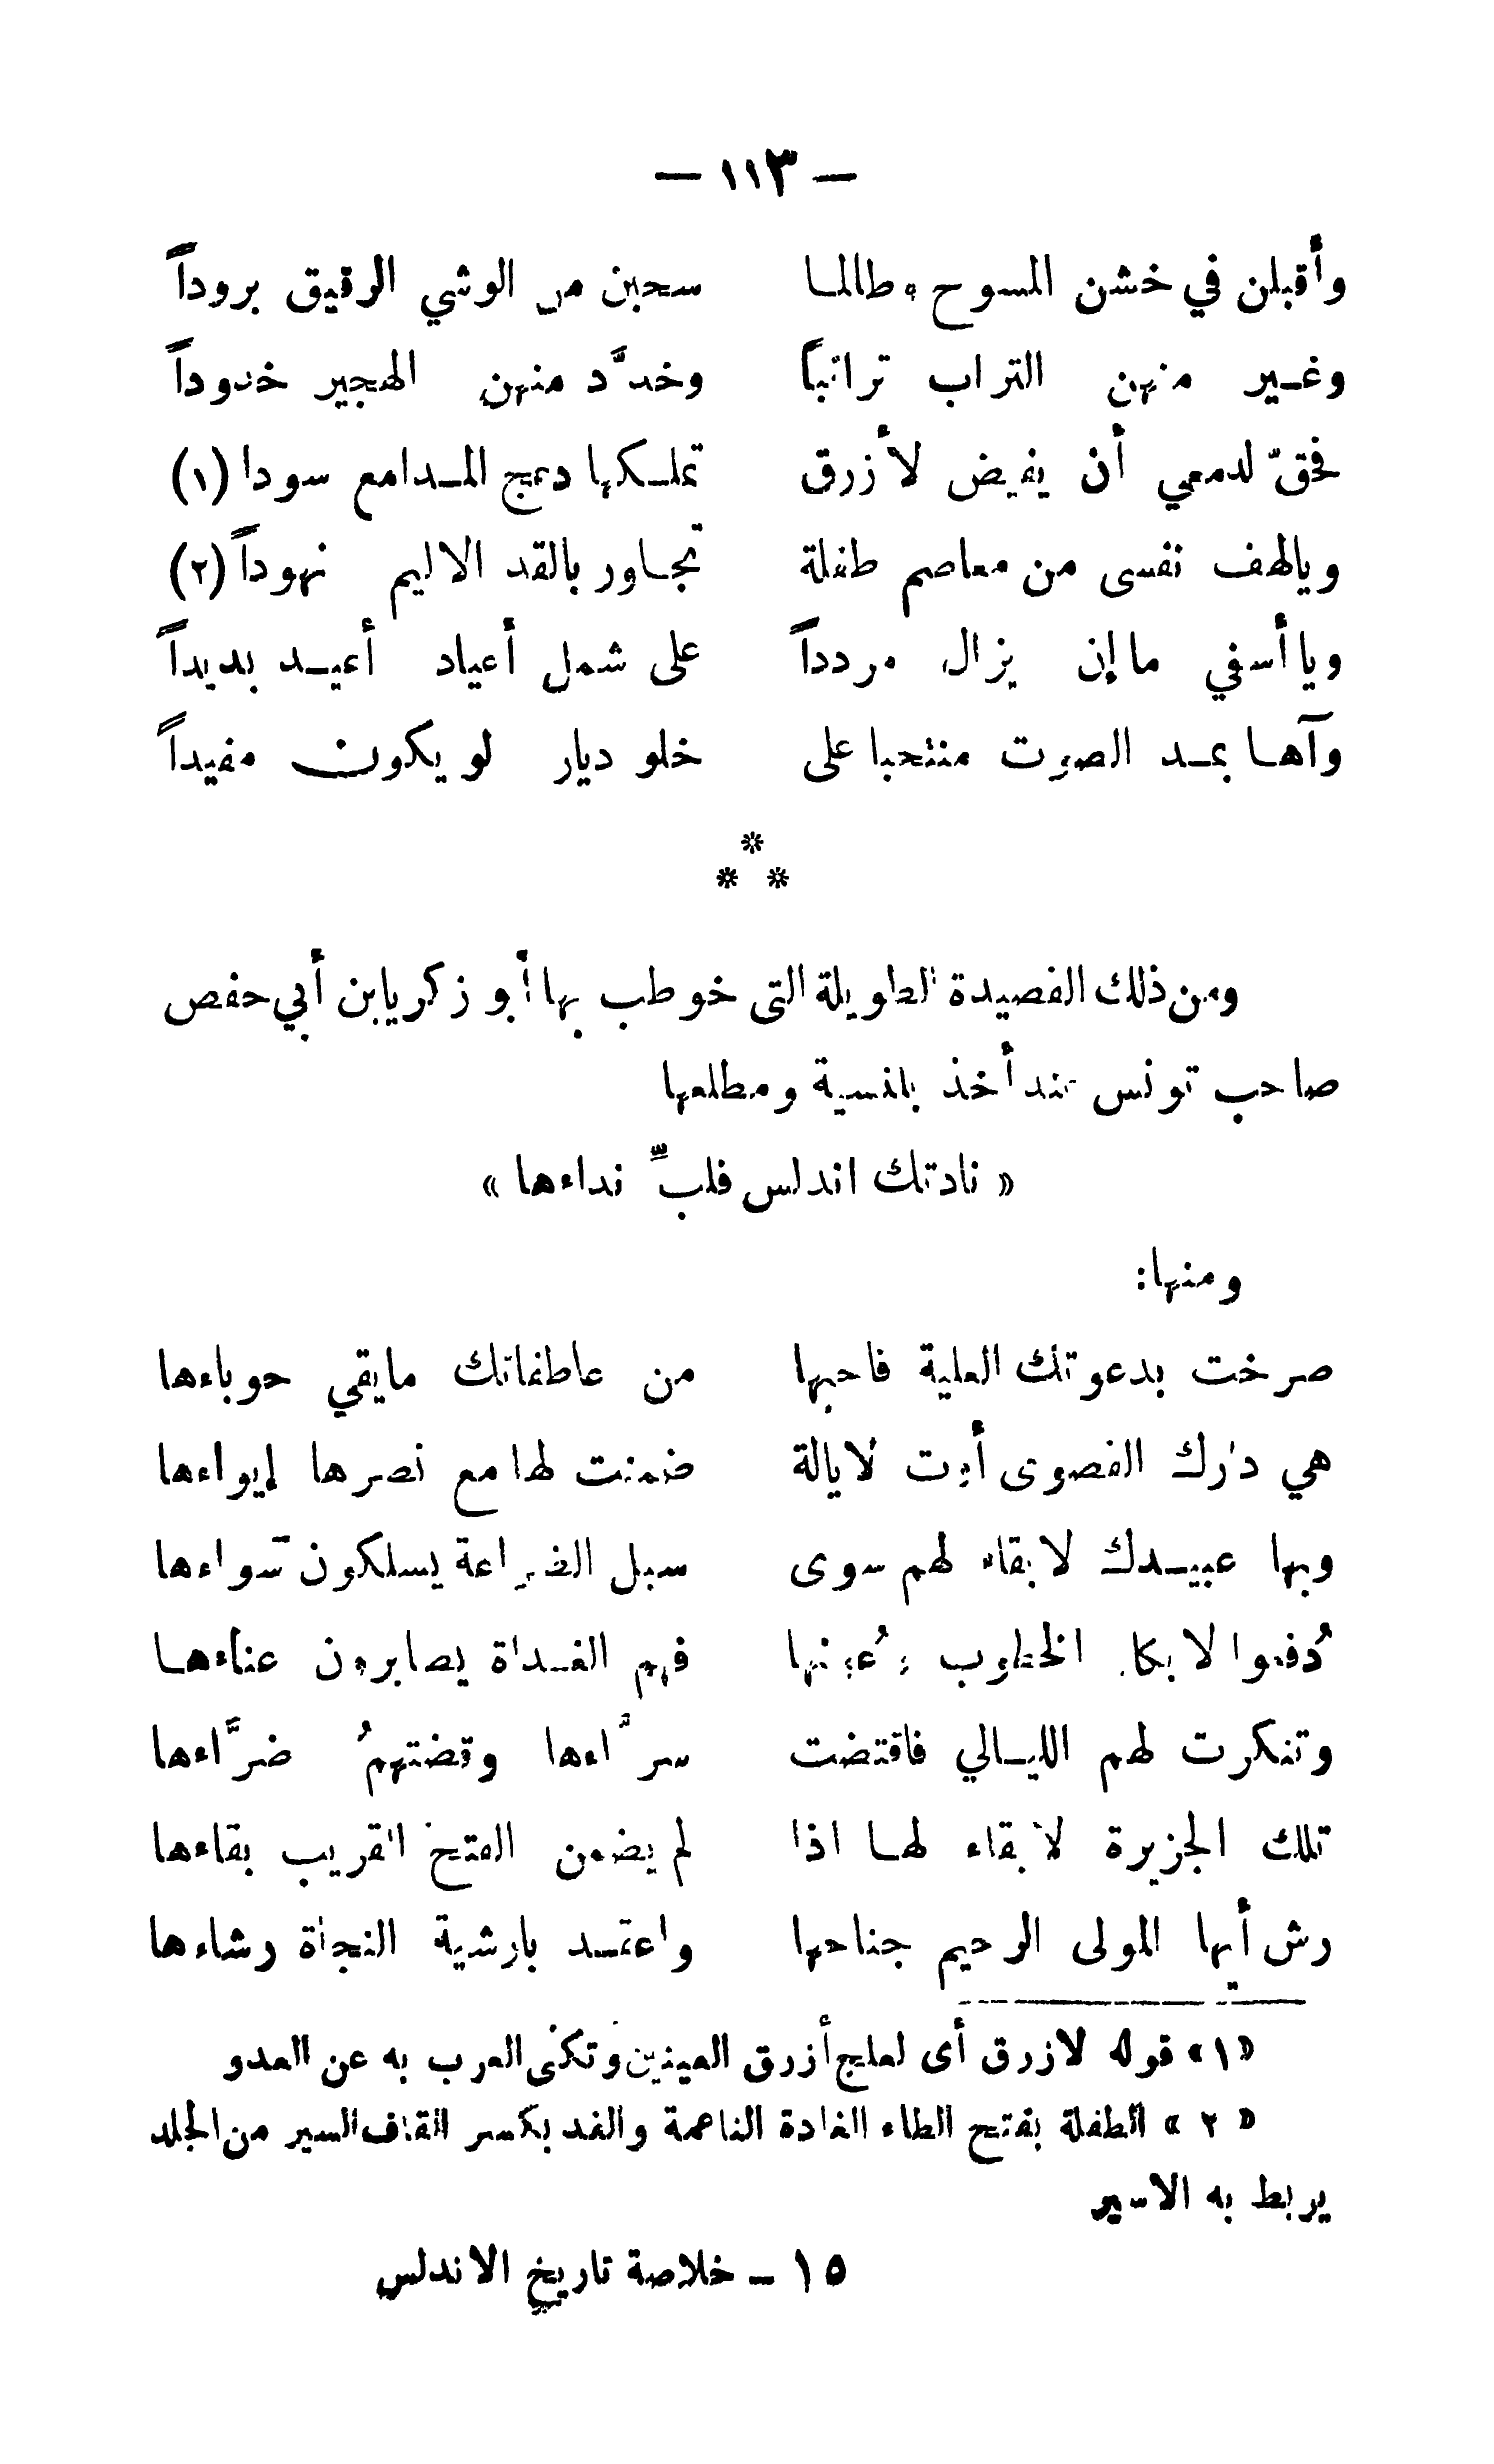 — ١١٣ —
وأقبلن في خشن المسوح وطالما سحبن من الوشي الرقيق بروداً
وغـير منهن التراب ترائباً وخدَّد منهن الهجير خدوداً
فحقّ لدمعي أن يفيض لأزرق تملـكها دعج المـدامع سودا (١)
ويالهف نفسى من معاصم طفلة تجـاور بالقد الاليم نهوداً (٢)
ويا أسفي ما إن يزال مردداً على شمل أعياد أعيـد بديداً
وآهـا بمـد الصوت منتحبا على خلو ديار لو يكون مفيداً
* * *
ومن ذلك القصيدة الطويلة التى خوطب بها أبو زكريا بن أبي حفص
صاحب تونس عند أخذ بلنسية ومطلعها
« نادتك اندلس فلبِّ نداءها »
ومنها:
صرخت بدعوتك العلية فاحبها من عاطفاتك مايقي حوباءها
هي دارك القصوى أوت لايالة ضمنت لها مع نصرها إيواءها
وبها عبيـدك لا بقاء لهم سوى سبل الضراعة يسلكون سواءها
دُفعوا لابكار الخطوب وعُونها فهم الغـداة يصابرون عناءهـا
وتنكرت لهم الليـالي فاقتضت سرَّاءها وقضتهمُ ضرَّاءها
تلك الجزيرة لا بقاء لهـا اذا لم يضمن الفتح القريب بقاءها
رش أيها المولى الرحيم جناحها واعقـد بارشية النجاة رشاءها
«١» قوله لازرق أى لعلج أزرق العينين وتكنى العرب به عن العدو
« ٢ » الطفلة بفتح الطاء الغادة الناعمة والقد بكسر القاف السير من الجلد
يربط به الاسير
١٥ – خلاصة تاريخ الاندلس